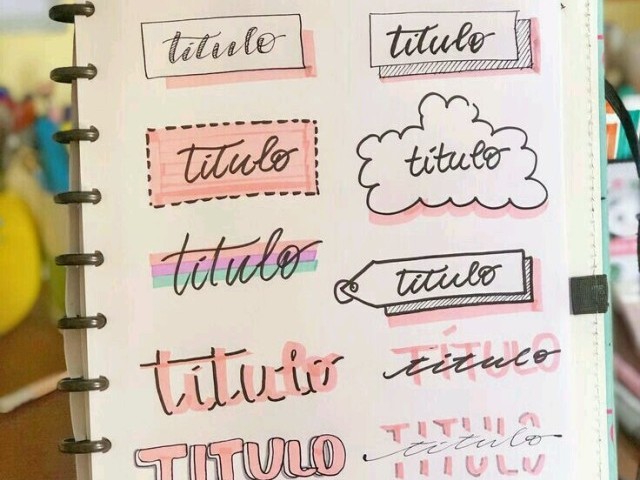 título
título
título
título
título
título
título
TÍTULO
título
TITULO
TITULO
título